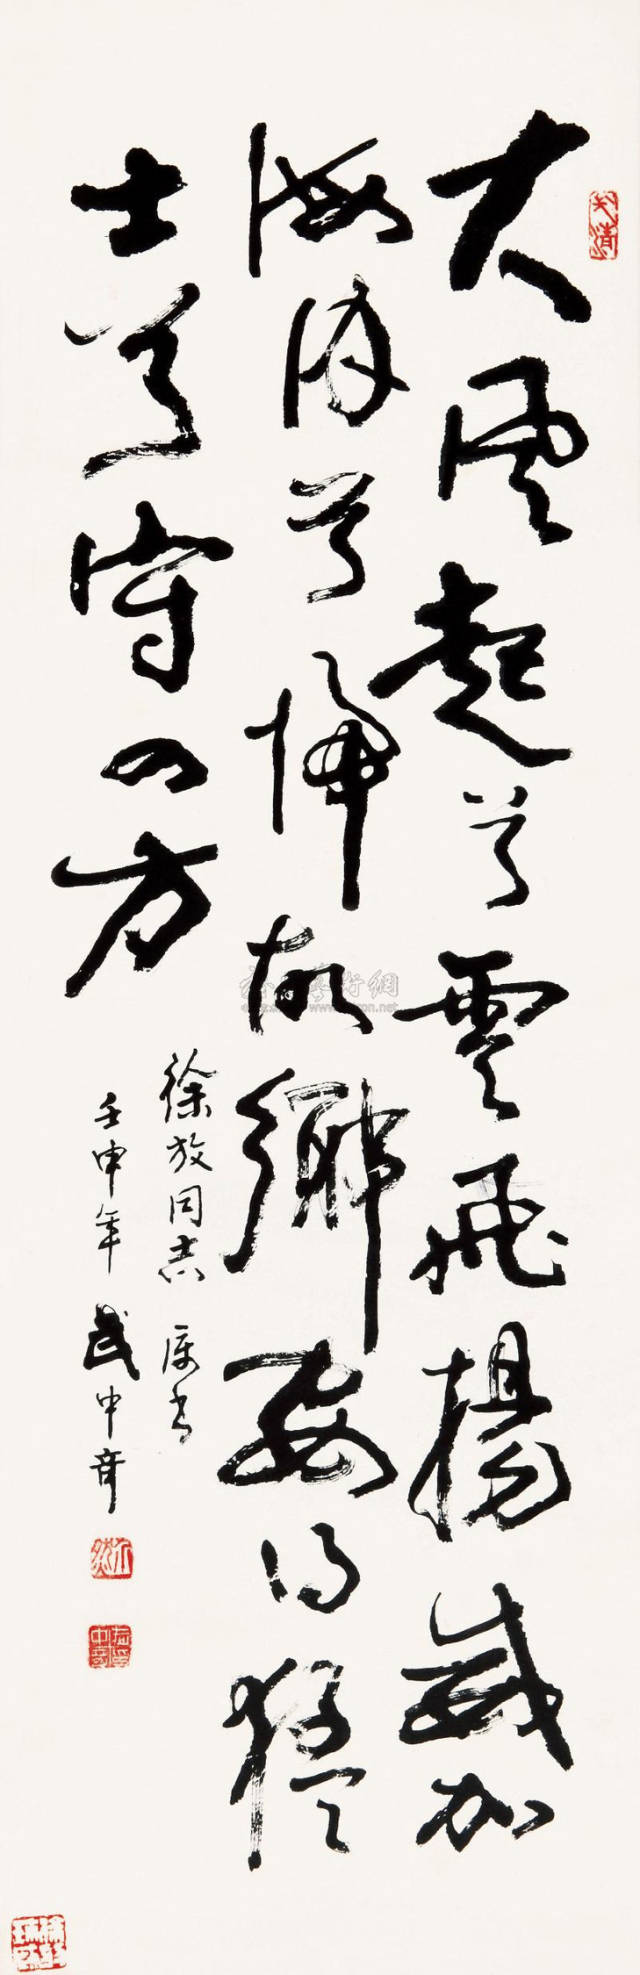 大风起兮雲飛揚威加
海内兮歸故鄉安得猛
士兮守四方
徐放同志 属书
壬申年 武中奇